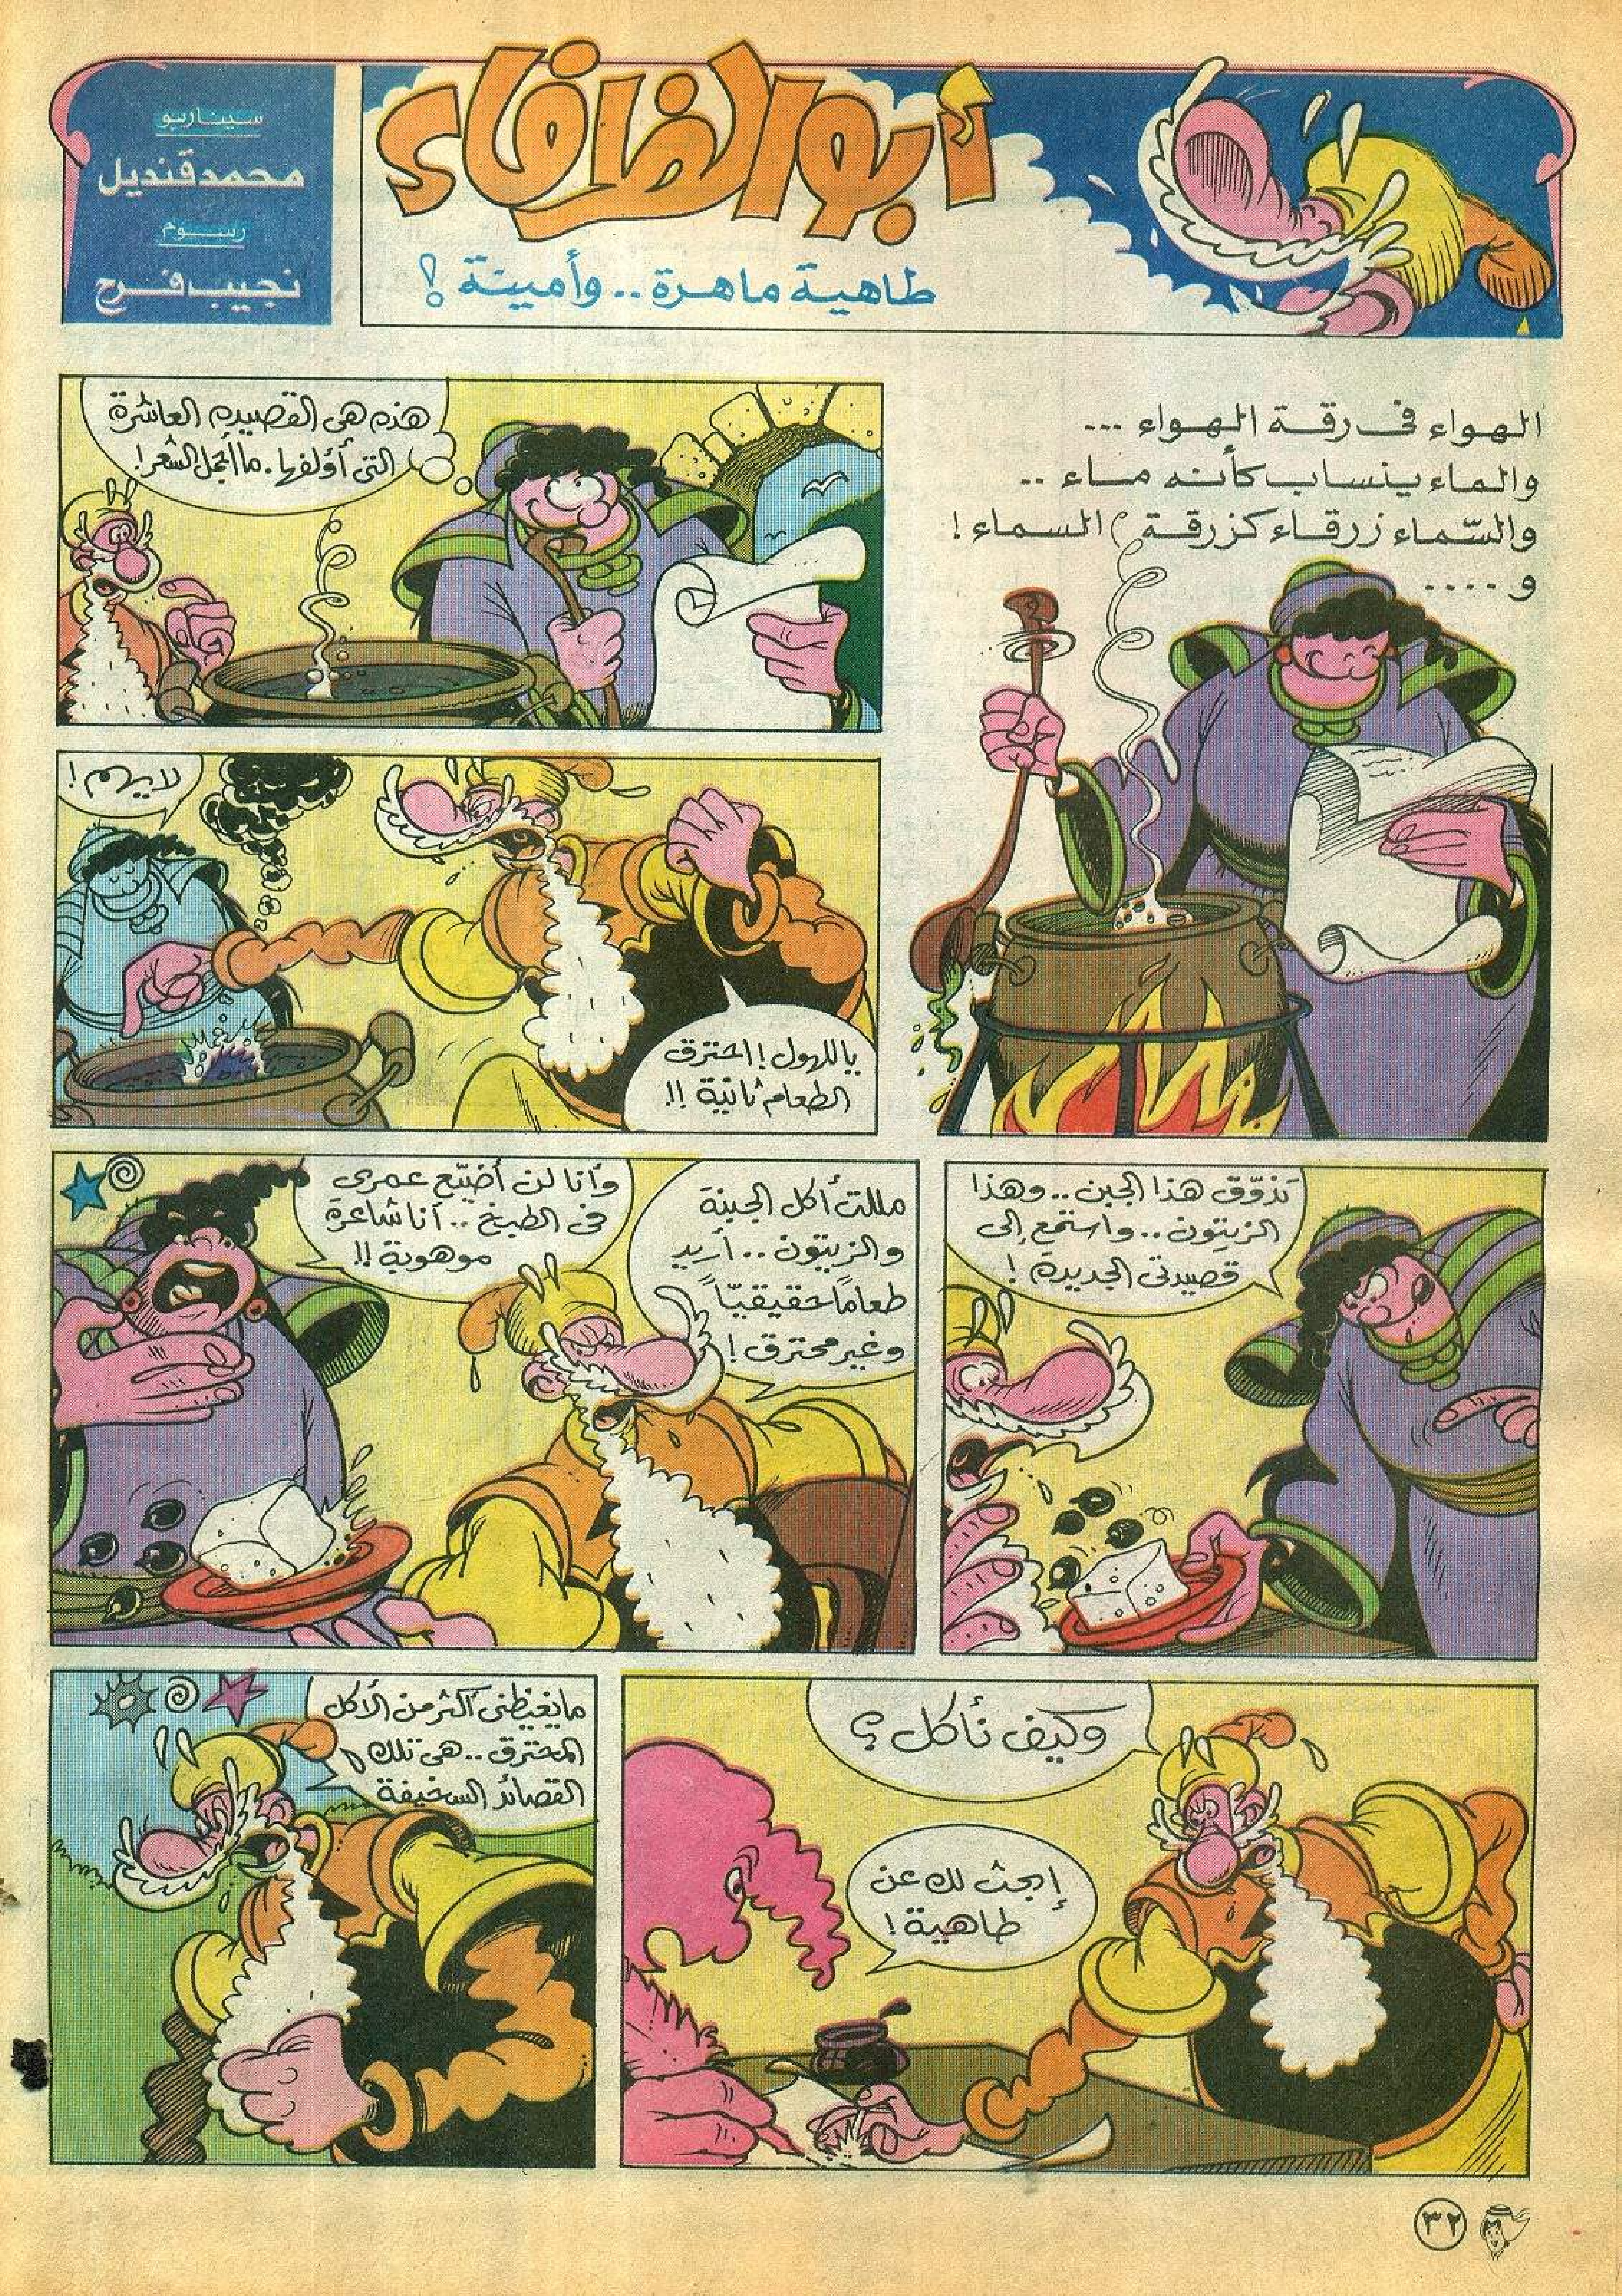 أبو الظرفاء
طاهية ماهرة .. وأمينة !
سيناريو
محمد قنديل
رسوم
نجيب فرج
الهواء فى رقة الهواء ...
والماء ينساب كأنه ماء ..
والسّماء زرقاء كزرقة السماء !
و ....
هذه هى القصيده العاشرة
التى أؤلفها . ما أجمل الشعر !
لا يهم !
يا للهول ! احترق
الطعام ثانية !!
تذوّق هذا الجبن .. وهذا
الزيتون .. واستمع إلى
قصيدتى الجديدة !
مللت أكل الجبنة
والزيتون .. أريد
طعامًا حقيقيّاً
وغير محترق !
وأنا لن أضيّع عمرى
فى الطبخ .. أنا شاعرة
موهوبة !!
وكيف نأكل ؟
إبحث لك عن
طاهية !
ما يغيظنى أكثر من الأكل
المحترق .. هى تلك
القصائد السخيفة
٣٢